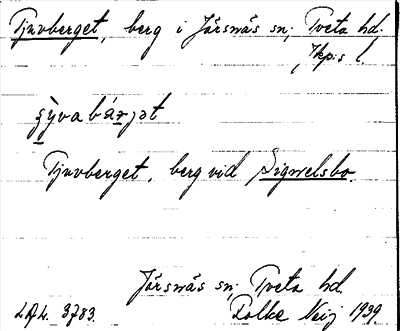 Tjuvberget, berg i Järsnäs sn; Tveta hd.
Jkp:s l.
ṣy̆va bárjət
Tjuvberget, berg vid Sigwelsbo.
Järsnäs sn; Tveta hd.
LAL. 3783. Folke Neij 1939.